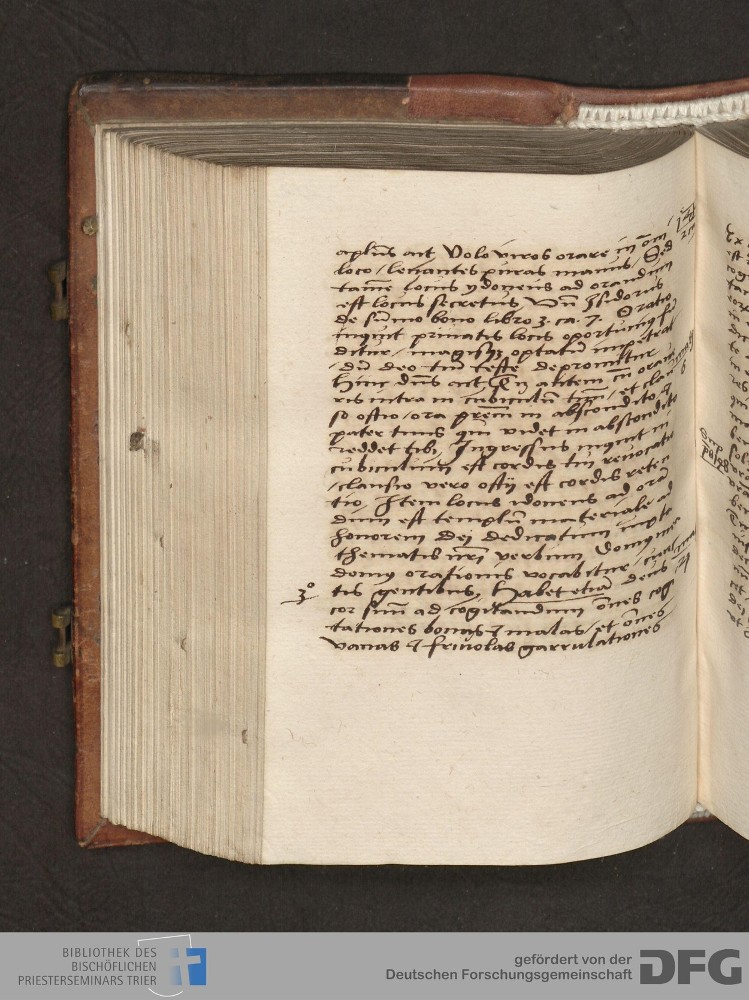 apl͞us ait Volo viros orare in o͞m
loco / leuantes puras manus / Sed
tame͞ locus ydoneus ad orandum
est locus secretus V͞n Hsidorus
de su͞mo bono libro 3. ca. 7. Oratio
inquit priuatis locis oportunius fu͞
ditur / magisqʒ optatu͞ impetrat
/ du͞ deo tm͞ teste depromitur
Hinc dn͞s ait, Tu autem cu͞ oraue
ris intra in cubiculu͞ tuu͞ / et clau
so ostio / ora prem͞ in abscondito &
pater tuus qui videt in abscondito
reddet tibi, Ingressus inquit in
cubiculum est cordis tui reuocatio
/ clausio vero ostij est cordis reten
tio, Item locus idoneus ad ora͞
dum est templu͞ materiale ad
honorem dej dedicatum iuxta
thematis nr͞i verbum Domus mea
domus orationis vocabitur / cunc
3° tis gentibus, Habet etia͞ deus
cor suu͞ ad cogitandum o͞nes cog
tationes bonas & malas / et o͞nes
vanas & friuolas garrulationes
BIBLIOTHEK DES
BISCHÖFLICHEN
PRIESTERSEMINARS TRIER
gefördert von der
Deutschen Forschungsgemeinschaft
DFG